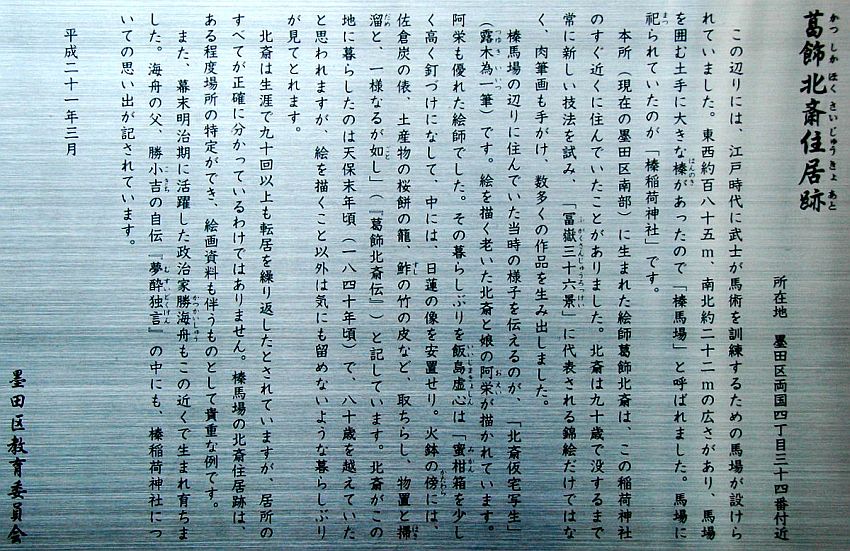 葛飾北斎住居跡
かつしかほくさいじゅうきょあと
所在地 墨田区両国四丁目三十四番付近
この辺りには、江戸時代に武士が馬術を訓練するための馬場が設けら
れていました。東西約百八十五m、南北約二十二mの広さがあり、馬場
を囲む土手に大きな榛があったので「榛馬場」と呼ばれました。馬場に
はんのき
祀られていたのが「榛稲荷神社」です。
まつ
本所（現在の墨田区南部）に生まれた絵師葛飾北斎は、この稲荷神社
のすぐ近くに住んでいたことがありました。北斎は九十歳で没するまで
常に新しい技法を試み、「冨嶽三十六景」に代表される錦絵だけではな
ふがくさんじゅうろっけい
く、肉筆画も手がけ、数多くの作品を生み出しました。
榛馬場の辺りに住んでいた当時の様子を伝えるのが、「北斎仮宅写生」
（露木為一筆）です。絵を描く老いた北斎と娘の阿栄が描かれています。
つゆきいいつ
おえい
阿栄も優れた絵師でした。その暮らしぶりを飯島虚心は「蜜柑箱を少し
いいじまきょしん
みかん
く高く釘づけになして、中には、日蓮の像を安置せり。火鉢の傍には、
かたわら
佐倉炭の俵、土産物の桜餅の籠、鮓の竹の皮など、取ちらし、物置と掃
すし
はき
溜と、一様なるが如し」（『葛飾北斎伝』）と記しています。北斎がこの
だめ
ごと
地に暮らしたのは天保末年頃（一八四十年頃）で、八十歳を越えていた
と思われますが、絵を描くこと以外は気にも留めないような暮らしぶり
が見てとれます。
北斎は生涯で九十回以上も転居を繰り返したとされていますが、居所の
すべてが正確に分かっているわけではありません。榛馬場の北斎住居跡は、
ある程度場所の特定ができ、絵画資料も伴うものとして貴重な例です。
また、幕末明治期に活躍した政治家勝海舟もこの近くで生まれ育ちま
かつかいしゅう
した。海舟の父、勝小吉の自伝『夢酔独言』の中にも、榛稲荷神社につ
こきち
むすいどくげん
いての思い出が記されています。
平成二十一年三月
墨田区教育委員会